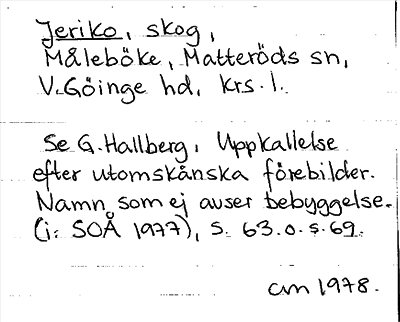 Jeriko, skog,
Måleböke, Matteröds sn,
V. Göinge hd, Krs. l.
Se G. Hallberg, Uppkallelse
efter utomskånska förebilder.
Namn som ej avser bebyggelse.
(i: SOÅ 1977), s. 63. o. s. 69.
am 1978.